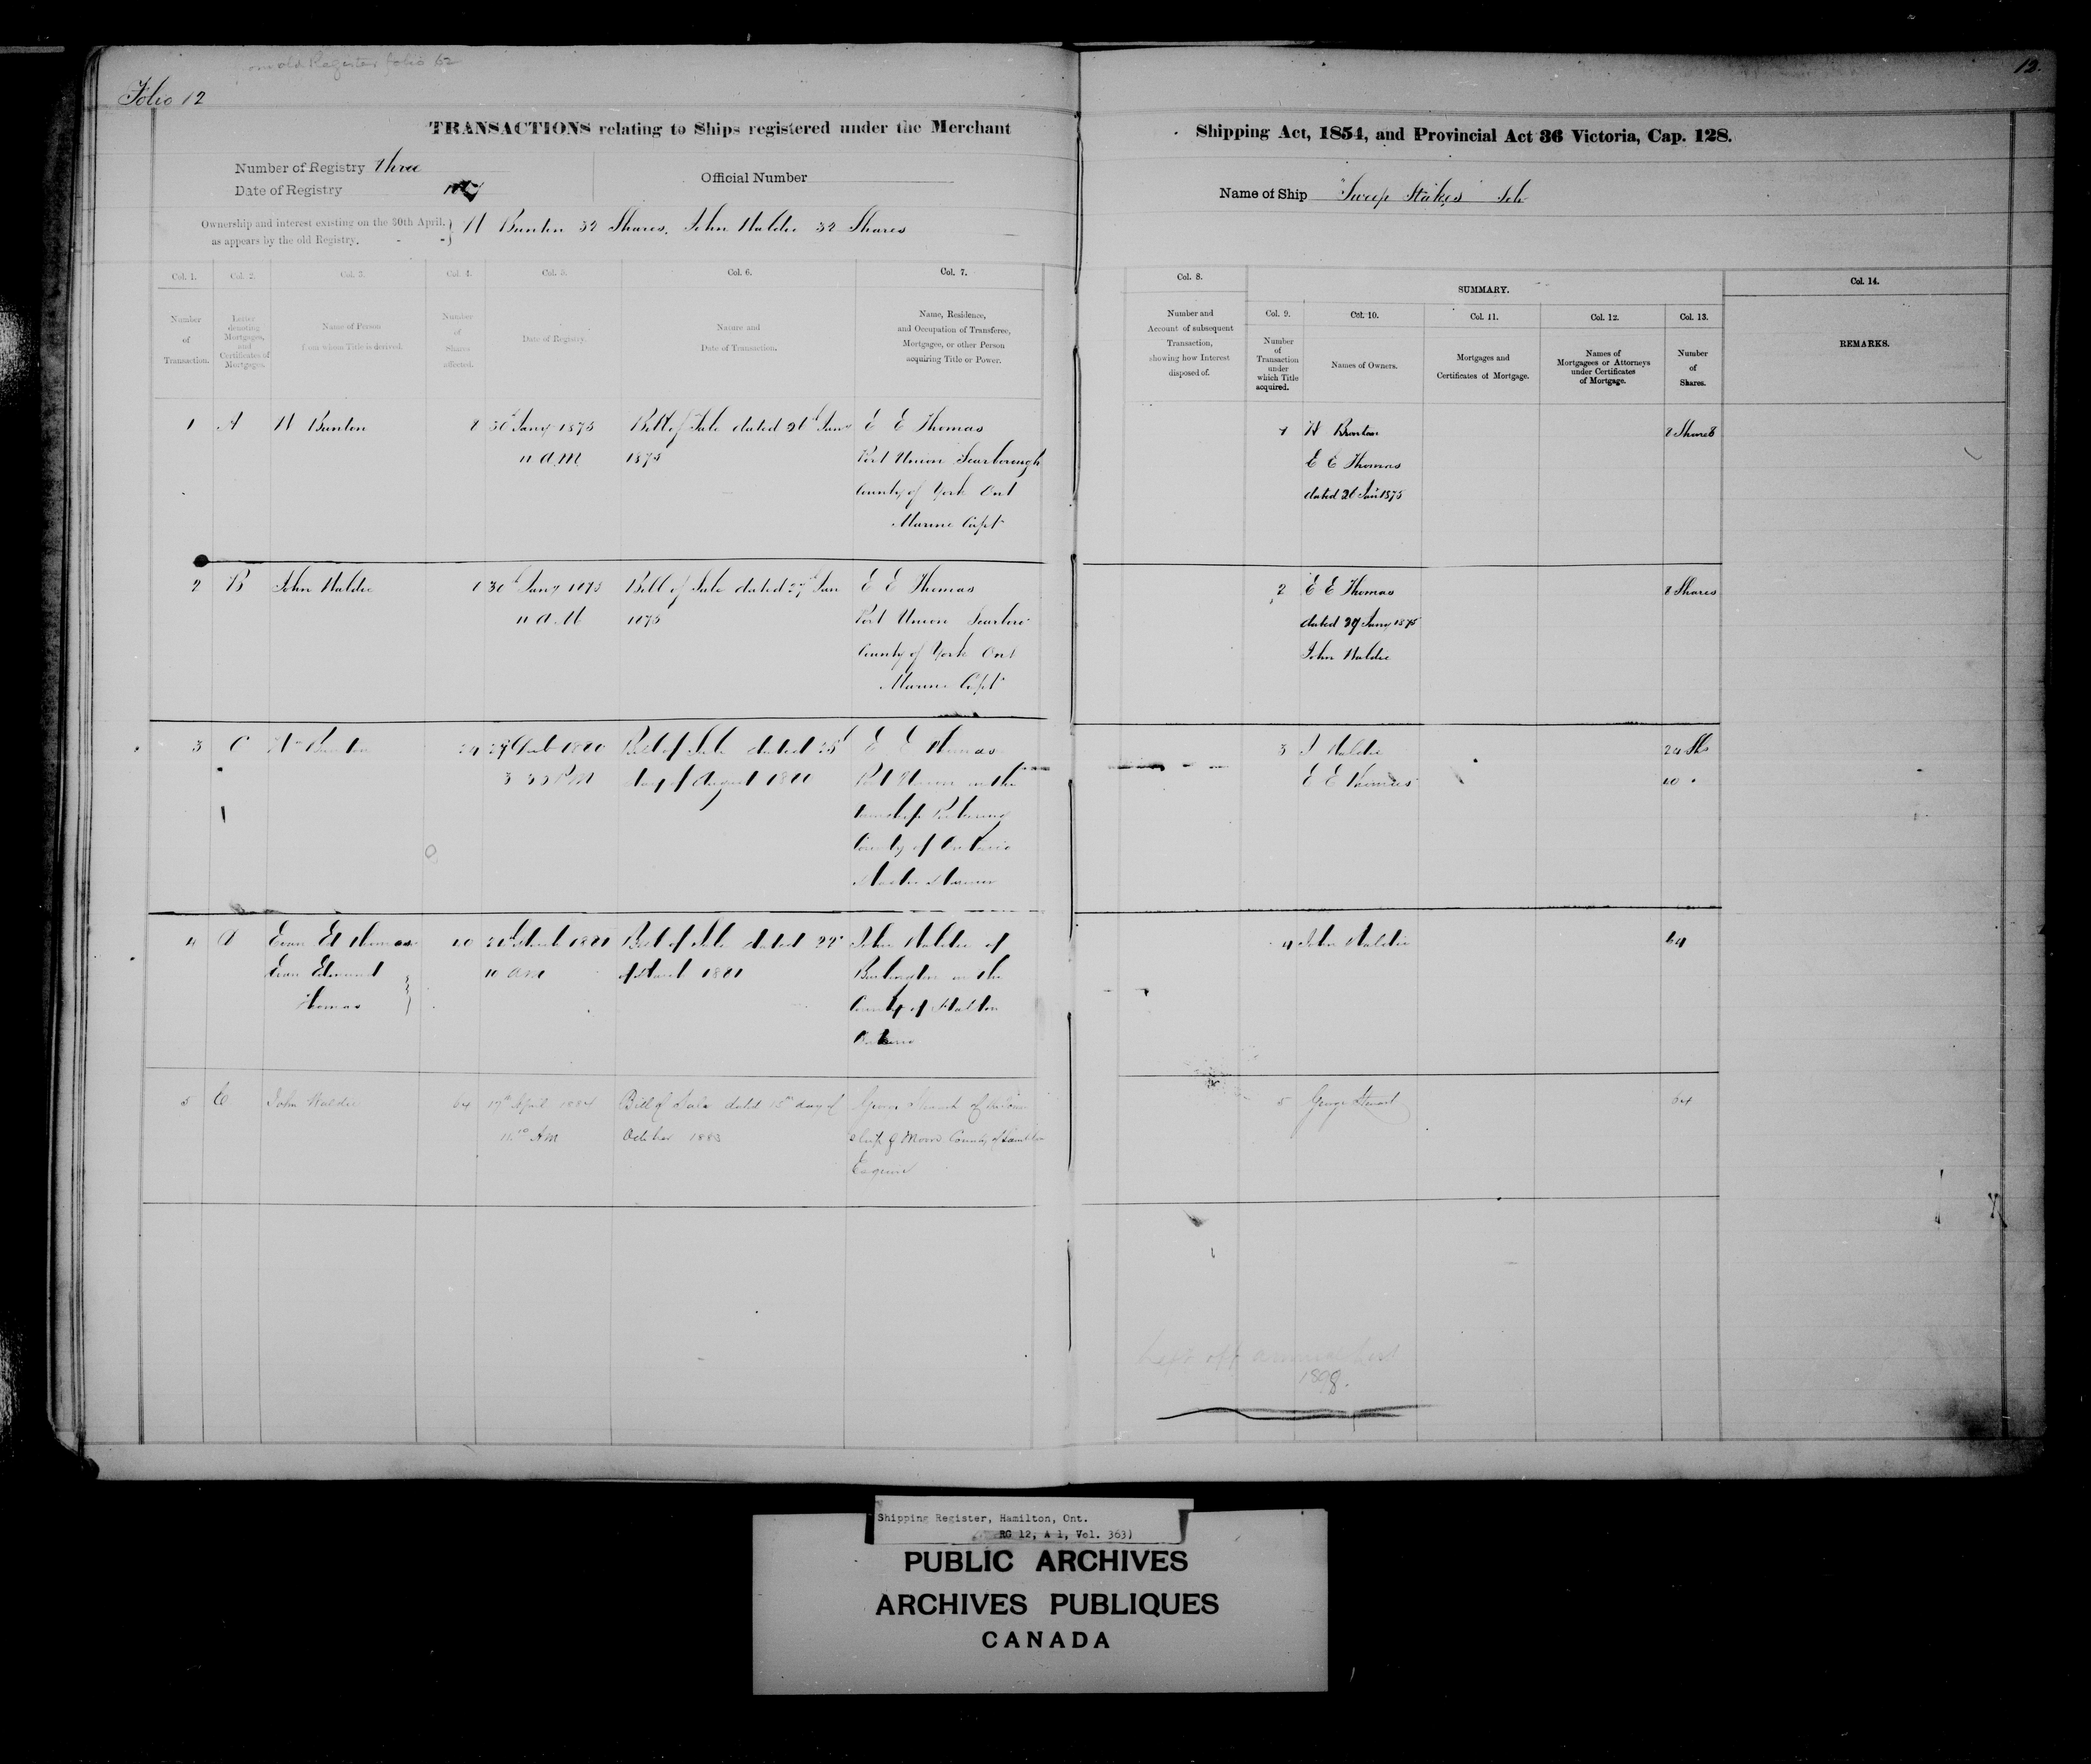 on old Register folio 62
Folio 12
12.
TRANSACTIONS relating to Ships registered under the Merchant
Shipping Act, 1854, and Provincial Act 36 Victoria, Cap. 128.
Number of Registry three
Date of Registry
Official Number
Name of Ship "Sweep Stakes" Sch
Ownership and interest existing on the 30th April,
as appears by the old Registry.
W Bunton 32 Shares. John Waldie 32 Shares
Col. 1. Col. 2. Col. 3. Col. 4. Col. 5. Col. 6. Col. 7.
Number
of
Transaction.
Letter
denoting
Mortgages,
and
Certificates of
Mortgages
Name of Person
from whom Title is derived.
Number
of
Shares
affected.
Date of Registry.
Nature and
Date of Transaction.
Name, Residence,
and Occupation of Transferee,
Mortgagee, or other Person
acquiring Title or Power.
Col. 8.
Number and
Account of subsequent
Transaction,
showing how Interest
disposed of.
SUMMARY.
Col. 9. Col. 10. Col. 11. Col. 12. Col. 13.
Number
of
Transaction
under
which Title
acquired.
Names of Owners.
Mortgages and
Certificates of Mortgage.
Names of
Mortgagees or Attorneys
under Certificates
of Mortgage.
Number
of
Shares.
Col. 14.
REMARKS.
1 A W Bunton 8 30th Jany 1875 Bill of Sale dated 26th Jany E E Thomas
11 A.M 1875 Port Union Scarborough
County of York Ont
Marine Capt
1 W Bunton 8 Shares
E E Thomas
dated 26 Jan 1875
2 B John Waldie 8 30th Jany 1875 Bill of Sale dated 27th Jan E E Thomas
11 A.M 1875 Port Union Scarboro
County of York Ont
Marine Capt
2 E E Thomas 8 Shares
dated 27 Jany 1875
John Waldie
3 C Wm Bunton 24 1880 Bill of Sale dated 25th E E Thomas
3 35 PM day of August 1880 Port Union in the
township Pickering
County of Ontario
Master Mariner
3 J Waldie 24 Shs
E E Thomas 40 "
4 D Evan Ed Thomas 40 March 1881 Bill of Sale dated 22 John Waldie of
Evan Edmund 10 AM of March 1881 Burlington in the
Thomas County of Halton
Ontario
4 John Waldie 64
5 E John Waldie 64 17th April 1884 Bill of Sale dated 15th day of George Stewart of the Town
11.10 AM October 1883 ship of Moore County of Lambton
Esquire
5 George Stewart 64
Left off annual list
1898.
Shipping Register, Hamilton, Ont.
RG 12, A 1, Vol. 363)
PUBLIC ARCHIVES
ARCHIVES PUBLIQUES
CANADA